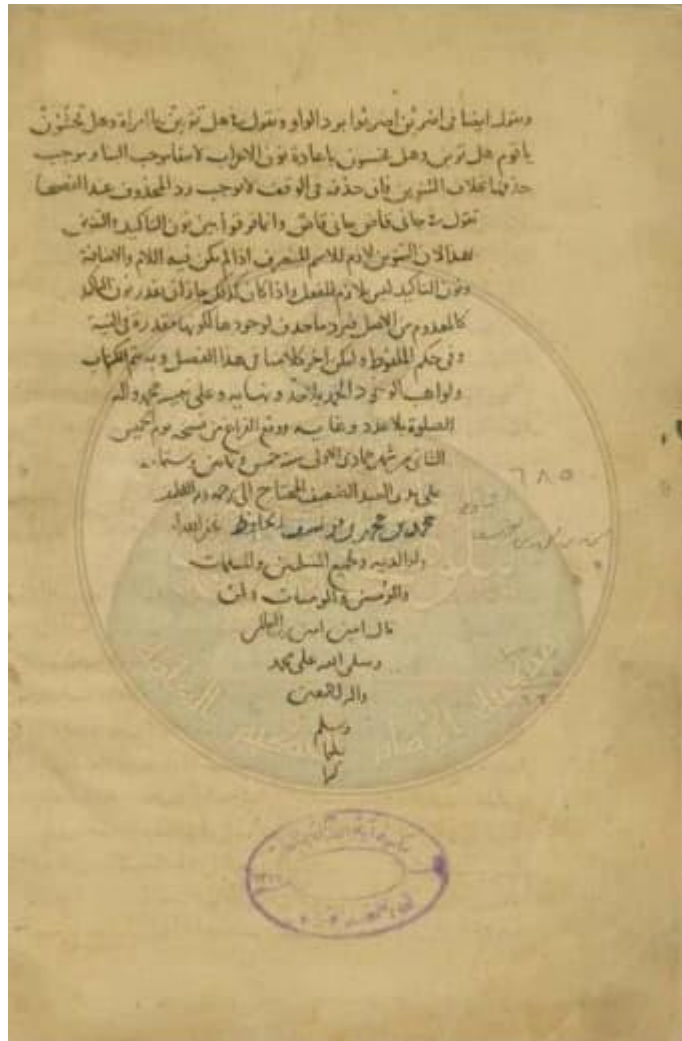 وتقول ايضا في اضربن اضربوا برد الواو وتقول في هل تضربن يا امراة وهل
يا قوم هل تضربين وهل باعادة نون الاعراب لانتفاء موجب البناء وموجب
حذفها بخلاف التنوين فان حذفه في الوقف لا يوجب رد المحذوف عند
تقول في جاني قاض جاني قاض وانما فرقوا بين نون التاكيد والتنوين
لان التنوين لازم للاسم المتصرف اذا لم يكن فيه اللام والاضافة
ونون التاكيد ليس بلازم للفعل واذا كان كذلك جاز ان يقدر نون التاكيد
كالمعدوم من الاصل فيرد ما حذف لوجودها لكونها مقدرة في النية
وفي حكم الملفوظ وليكن اخر كلامنا في هذا الفصل وبه يتم الكتاب
ولواهب الوجود الحمد بلا حد ونهاية وعلى محمد واله
الصلوة بلا عدد وغاية ووقع الفراغ من نسخه يوم الخميس
الثاني من شهر جمادى الاولى سنة خمس وثمانين وستمائة
على يدي العبد الضعيف المحتاج الى رحمة ربه اللطيف
محمد بن محمد بن يوسف الحافظ غفر الله له
ولوالديه ولجميع المسلمين والمسلمات
والمؤمنين والمؤمنات ولمن
قال امين امين رب العالمين
وصلى الله على محمد
واله اجمعين
وسلم
تسليما
كثيرا
٦٨٥